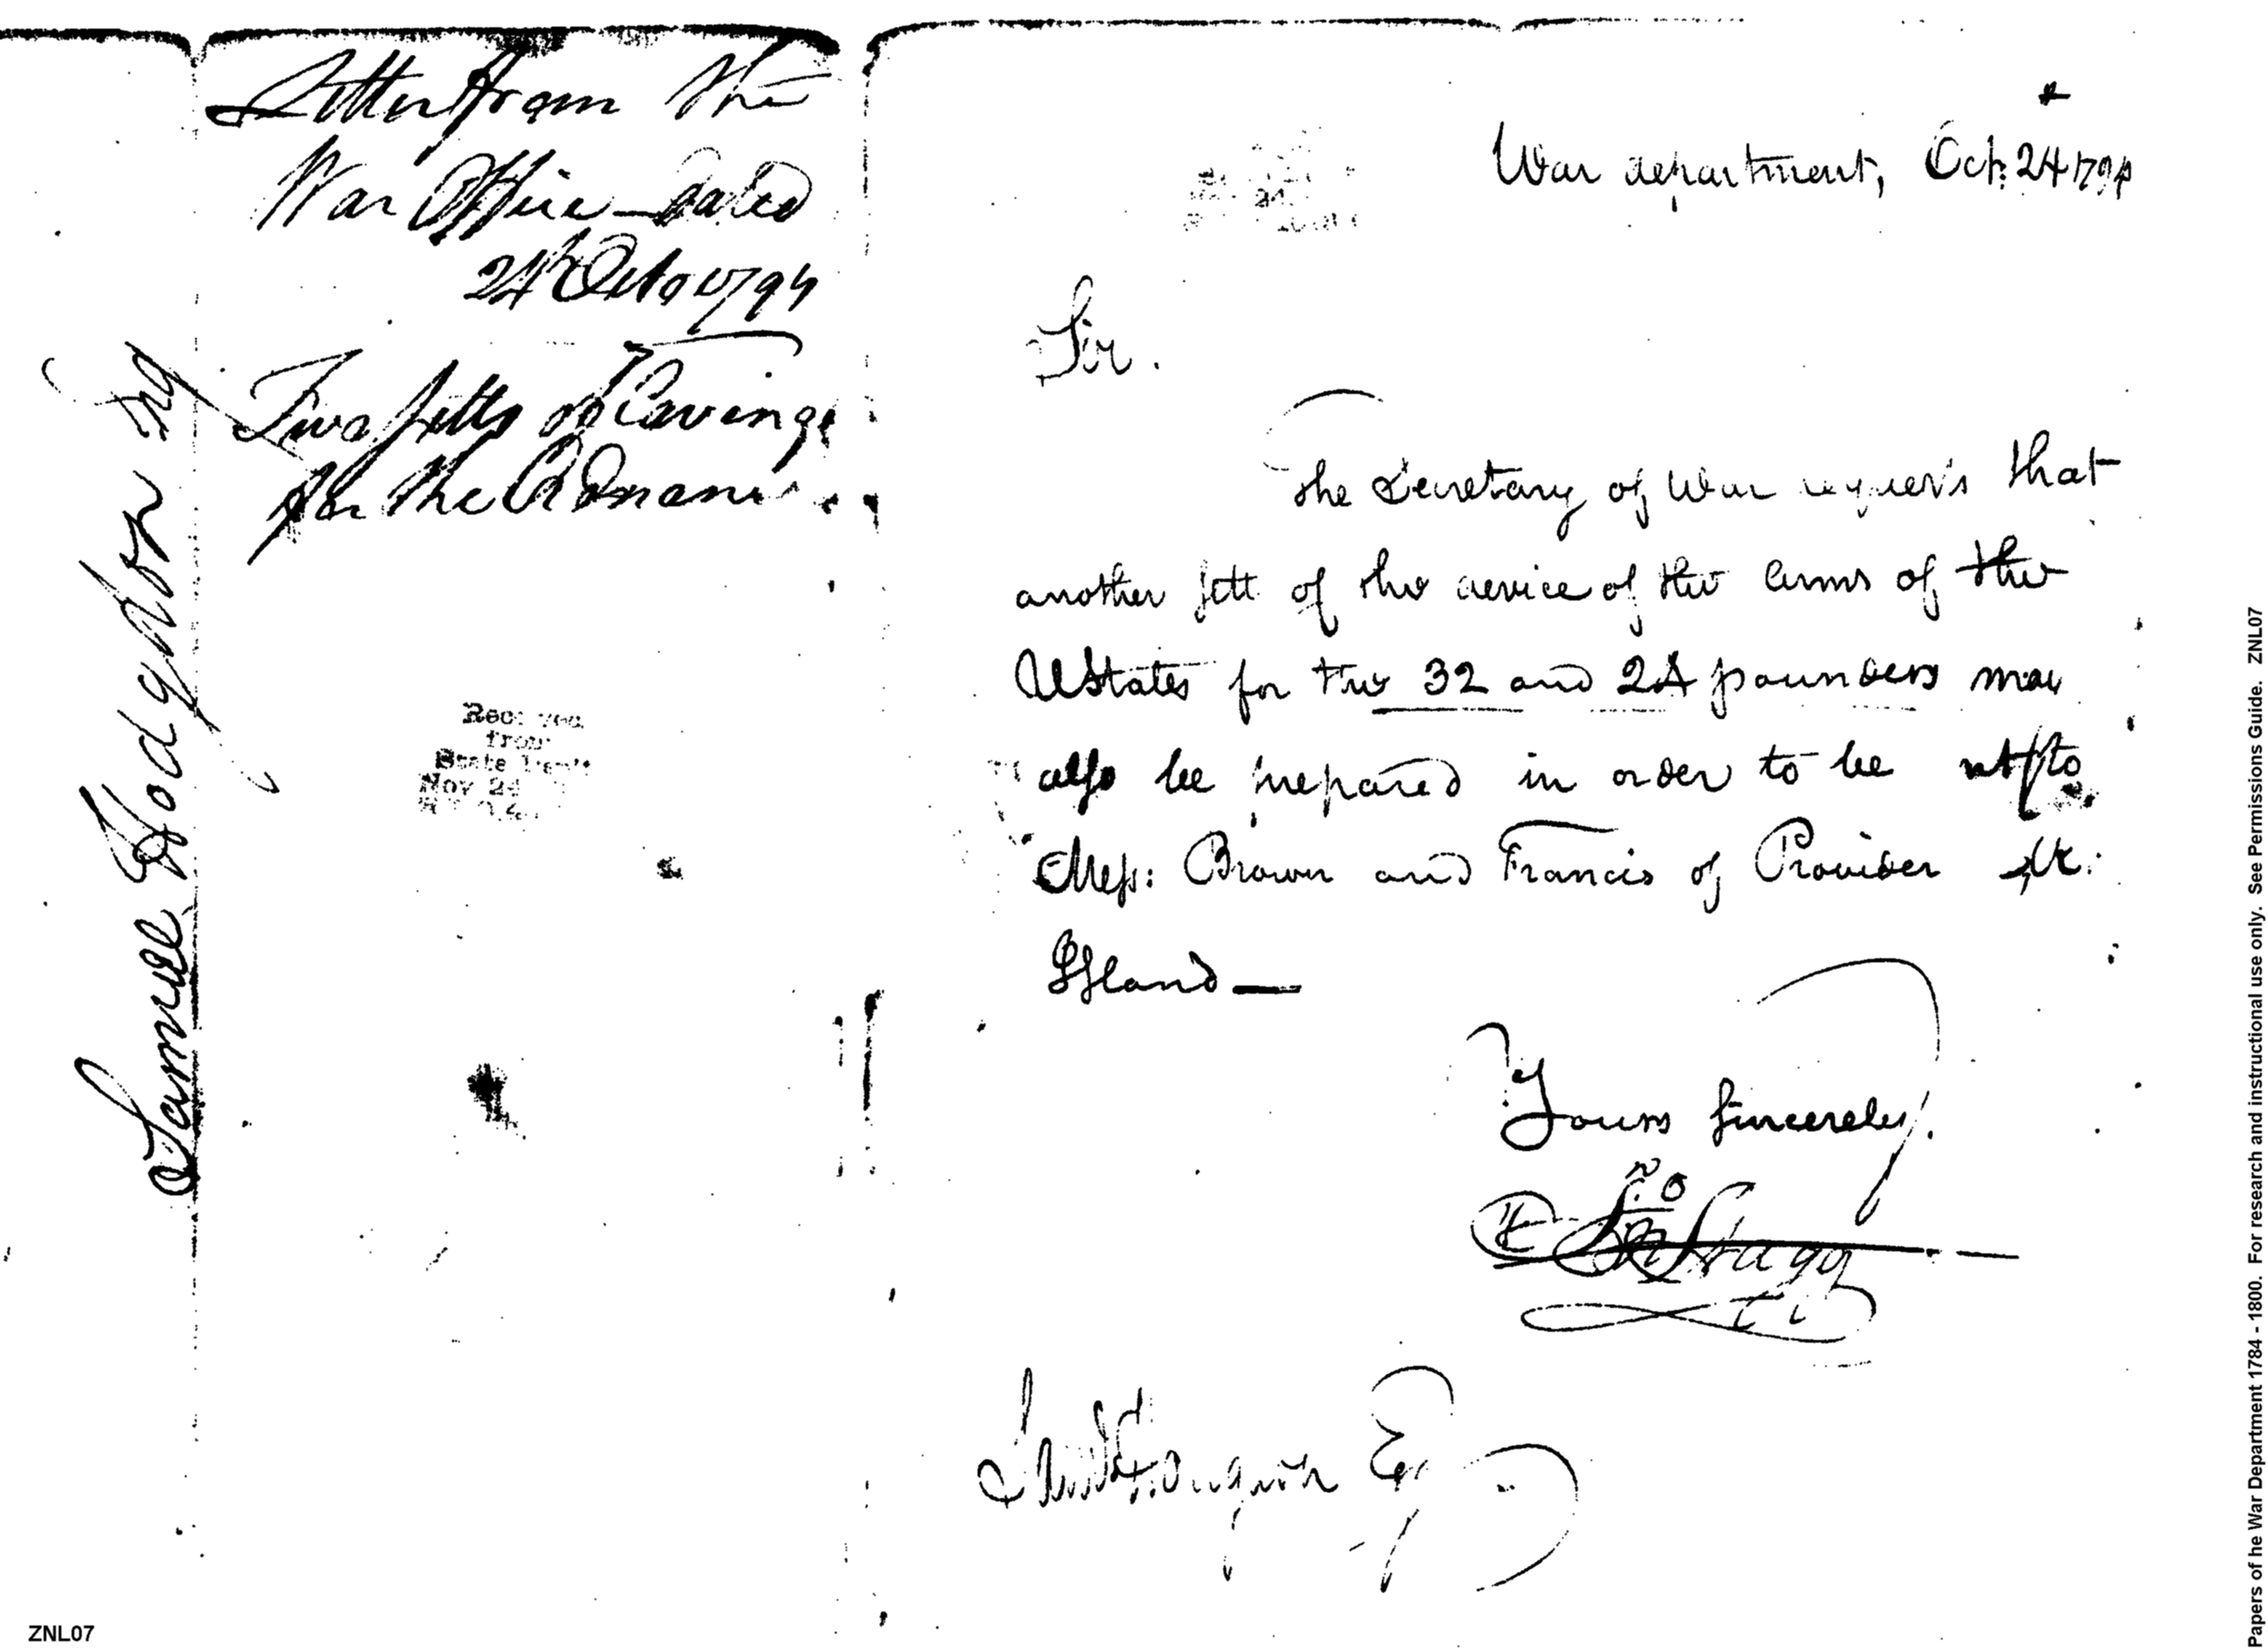 Letter from the
War Office dated
24 Octo 1794
Two setts of Carvings
for the Ordnance
Samuel Hodgdon Esq
Rec. ved
from
State Dept
Nov 24
War department, Oct: 24 1794
Sir.
The Secretary of War requests that
another sett of the device of the Arms of the
UStates for the 32 and 24 pounders may
also be prepared in order to be sent to
Mess: Brown and Francis of Providen
Island —
Yours Sincerely
Stagg
Samuel Hodgdon Esq
ZNL07
Papers of he War Department 1784 - 1800. For research and instructional use only. See Permissions Guide. ZNL07